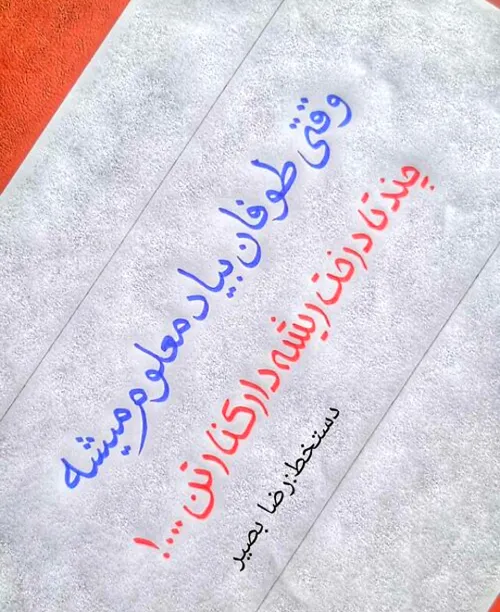 وقتی طوفان بیاد معلوم میشه
چند تا درخت ریشه دار کنارتن ....!
دستخط:رضا بصیر